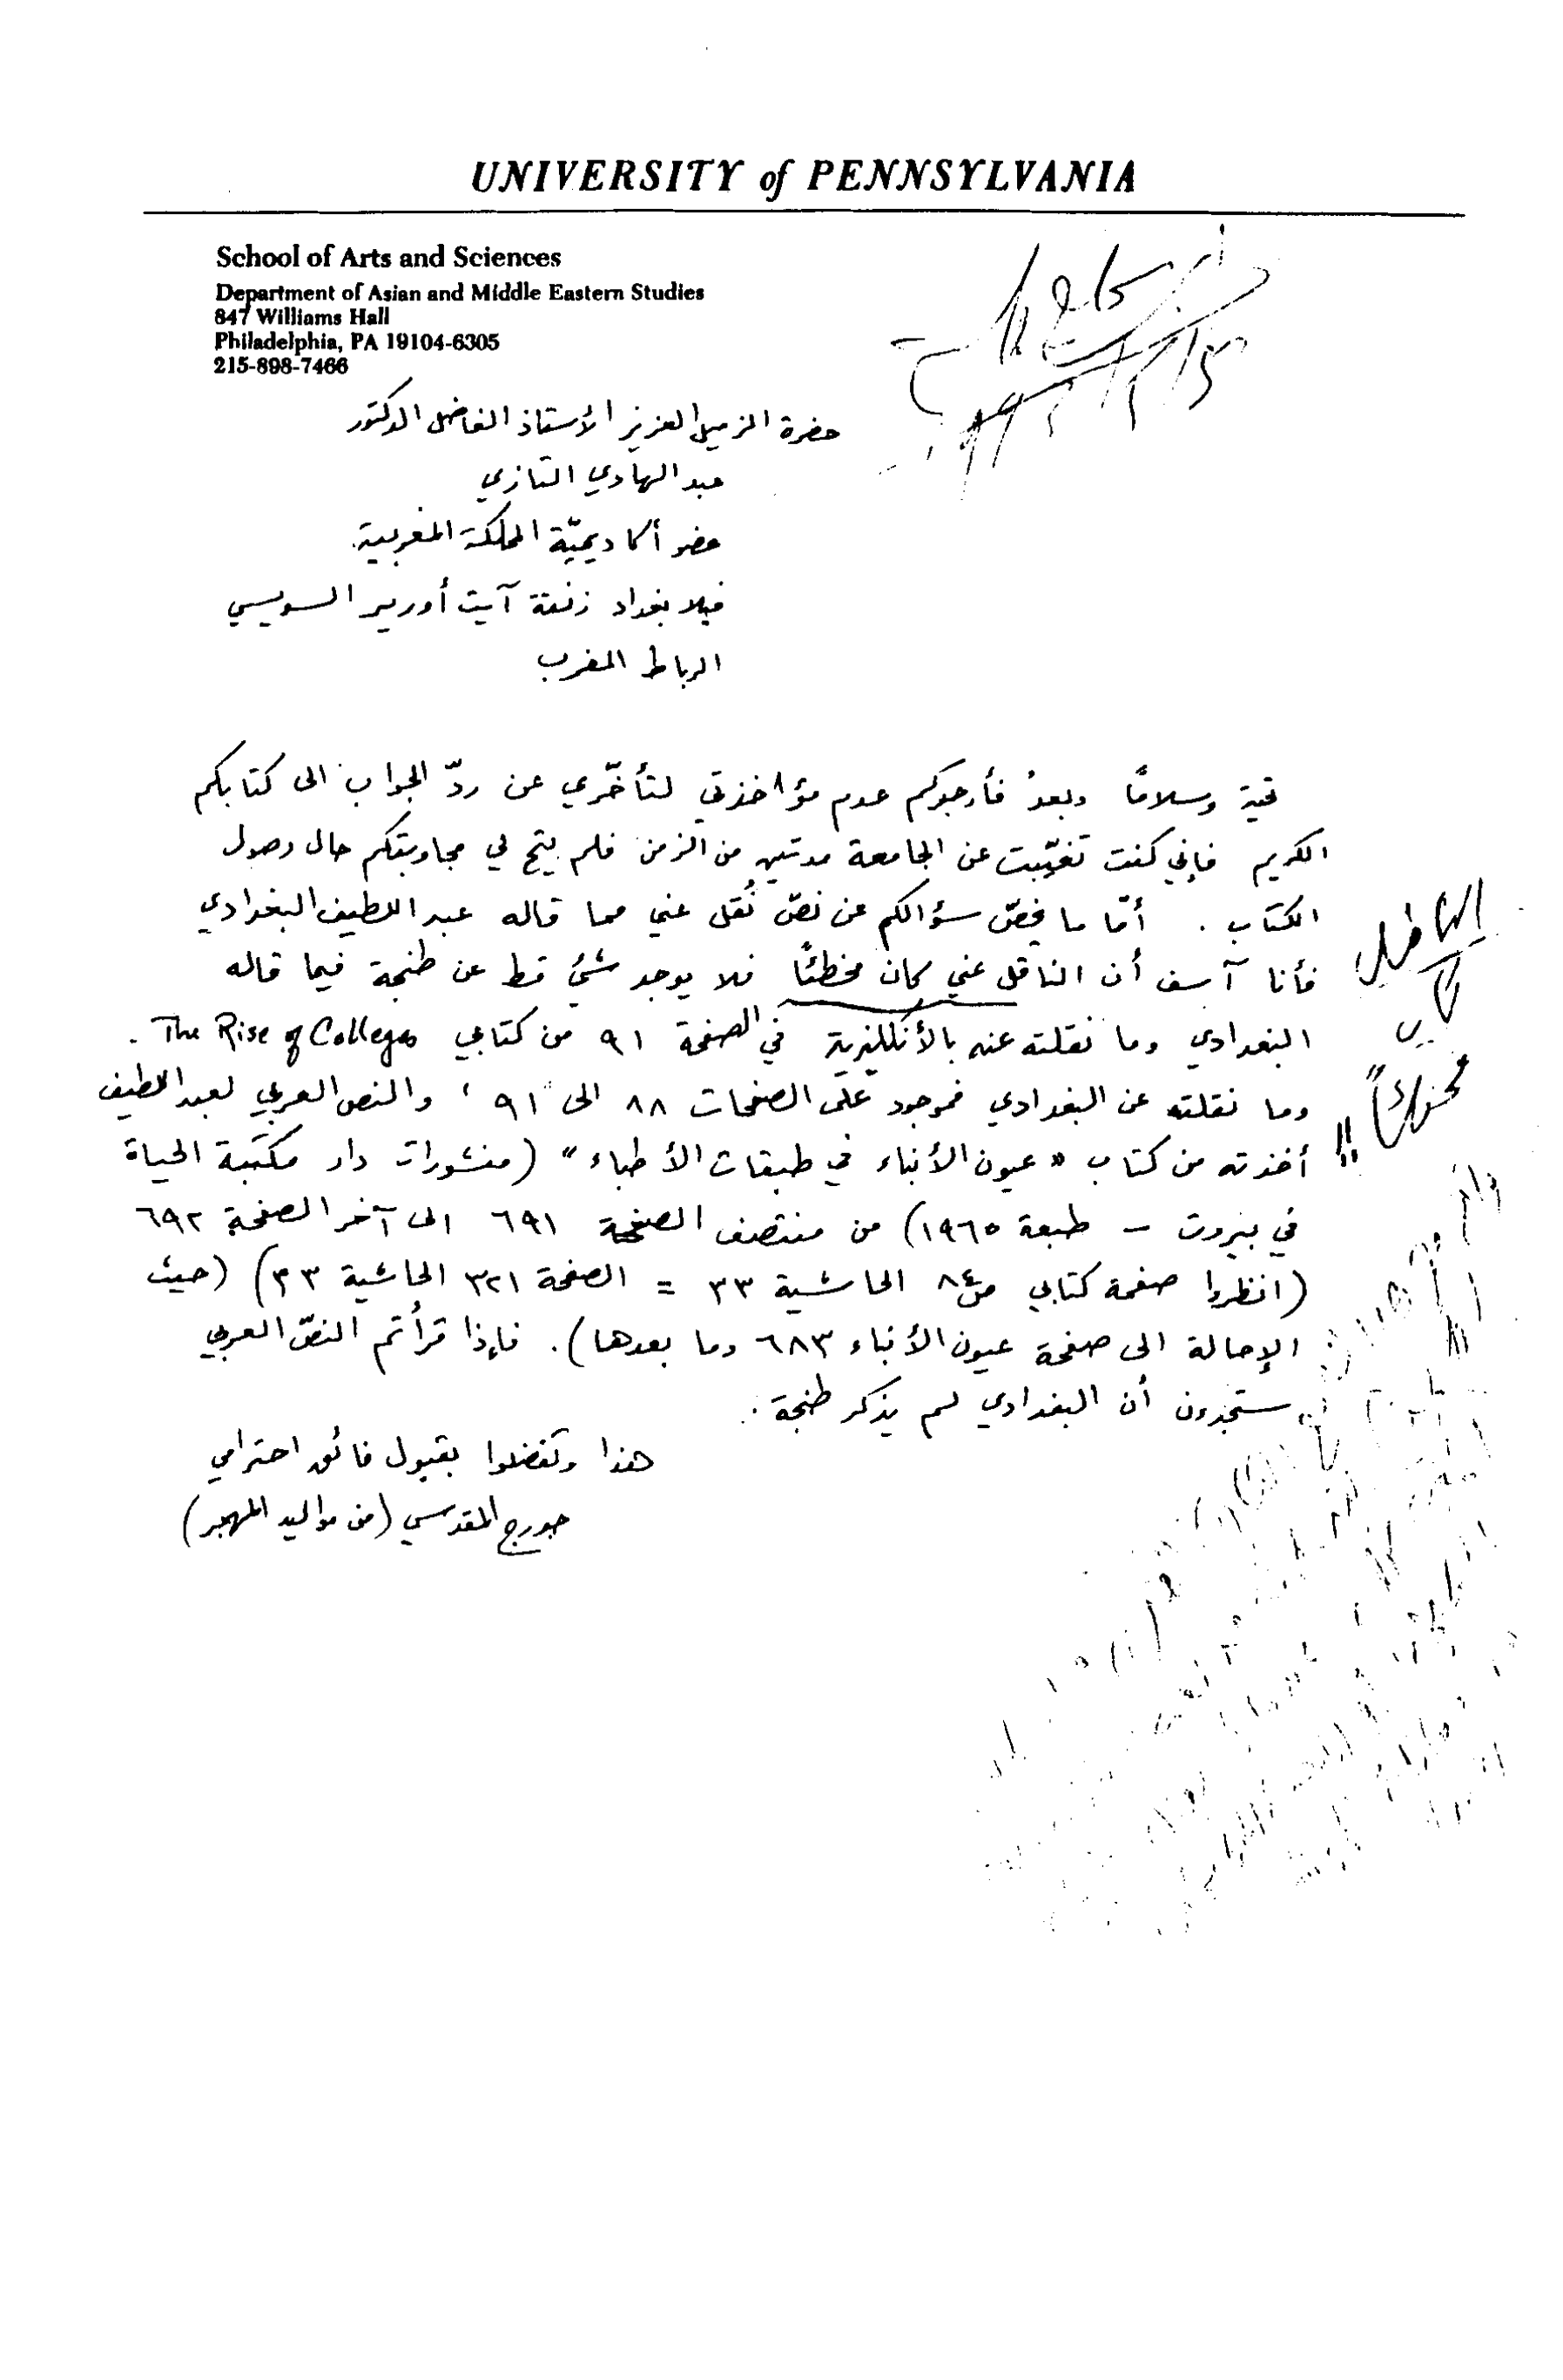 UNIVERSITY of PENNSYLVANIA
School of Arts and Sciences
Department of Asian and Middle Eastern Studies
847 Williams Hall
Philadelphia, PA 19104-6305
215-898-7466
حضرة الزميل العزيز الأستاذ الفاضل الدكتور
عبد الهادي التازي
عضو أكاديميّة المملكة المغربية
فيلا بغداد زنقة آيت أورير السويسي
الرباط المغرب
تحية وسلامًا وبعدُ فأرجوكم عدم مؤاخذتي لتأخّري عن ردّ الجواب الى كتابكم
الكريم فإني كنت تغيّبت عن الجامعة مدتين من الزمن فلم يتح لي مجاوبتكم حال وصول
الكتاب . أمّا ما يخصّ سؤالكم عن نصّ نُقل عني مما قاله عبد اللطيف البغدادي
فأنا آسف أن الناقل عني كان مخطئًا فلا يوجد شئ قط عن طنجة فيما قاله
البغدادي وما نقلته عنه بالأنكليزية في الصفحة ٩١ من كتابي The Rise of Colleges .
وما نقلته عن البغدادي فموجود على الصفحات ٨٨ الى ٩١ ، والنص العربي لعبد اللطيف
أخذته من كتاب « عيون الأنباء في طبقات الأطباء » (منشورات دار مكتبة الحياة
في بيروت – طبعة ١٩٦٥) من منتصف الصفحة ٦٩١ الى آخر الصفحة ٦٩٢
(انظروا صفحة كتابي ص ٨٤ الحاشية ٣٣ = الصفحة ٣٢١ الحاشية ٣٣) (حيث
الإحالة الى صفحة عيون الأنباء ٦٨٣ وما بعدها). فإذا قرأتم النصّ العربي
ستجدون أن البغدادي لم يذكر طنجة .
هذا وتفضلوا بقبول فائق احترامي
جورج المقدسي (من مواليد المهجر)